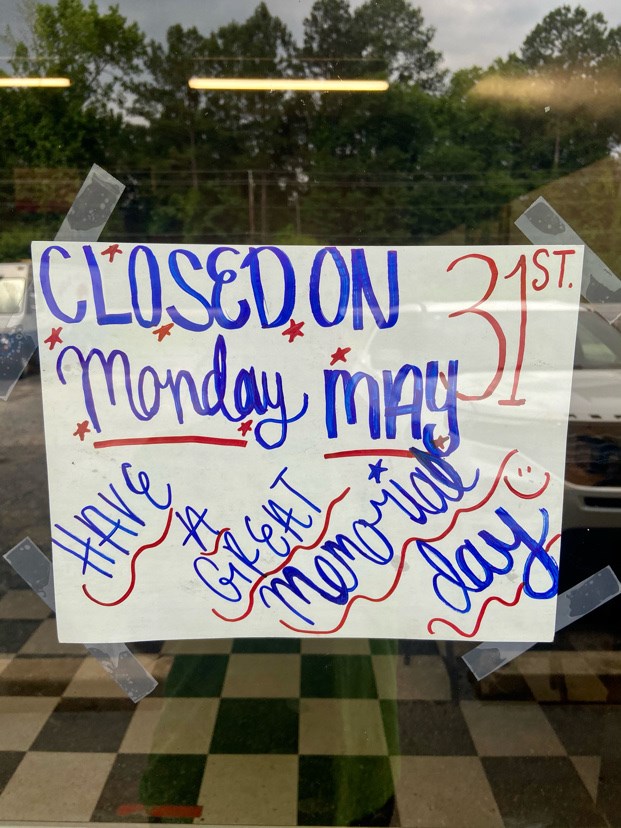 CLOSED ON 31ST.
Monday MAY
HAVE A GREAT Memorial day